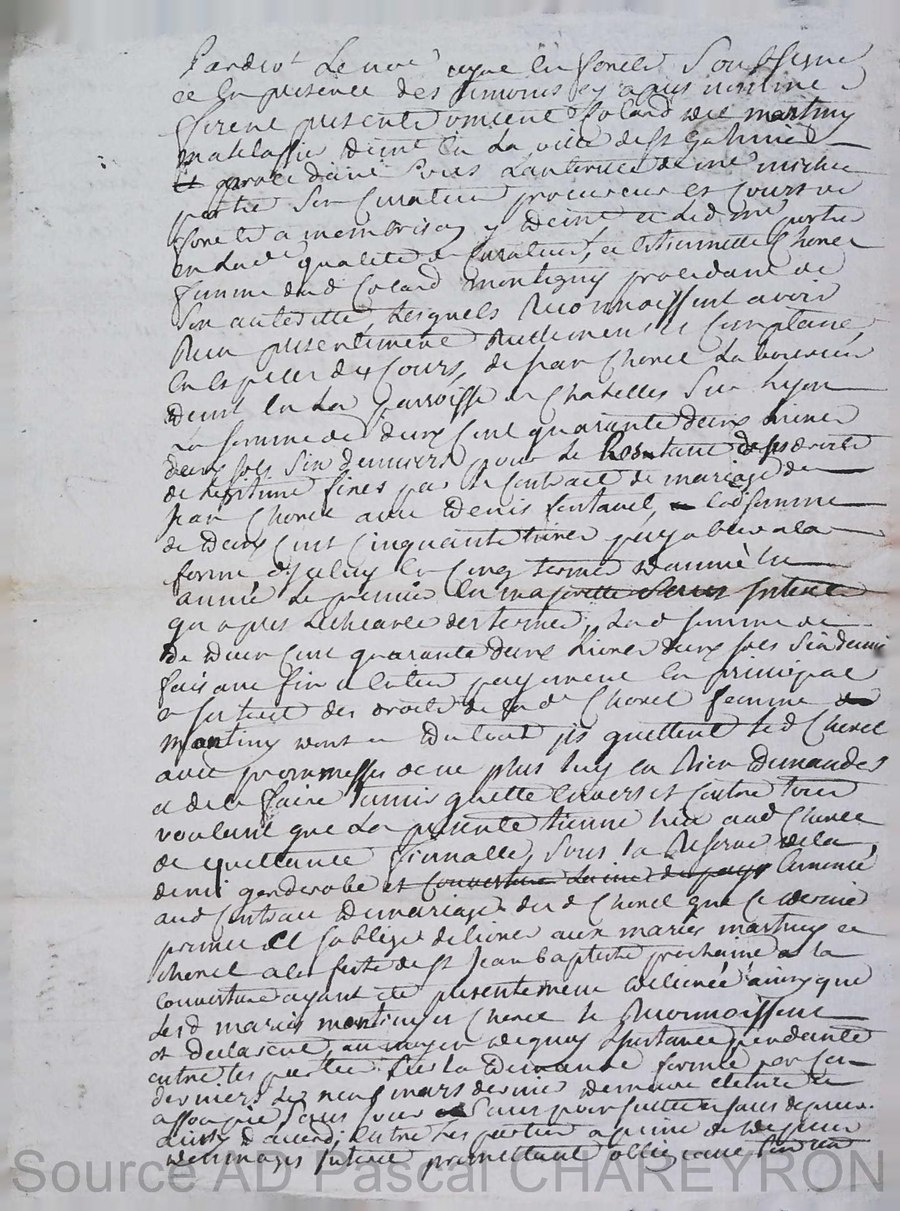 Pardevt Le nore royal en forests Soubsigné
et En presence des temoins cy apres nommés
furent presents vincent Colard de martiny
matelassie demt en La ville de st Galmier
procedant sous Lautorité de me
partie Son Curateur procureur es Cours de
forests a montbrison y demt et Led me partie
en Lade qualité de Curateur, et Estiennette Chorel
femme dud Colard montigny procedant de
Son autorité, Lesquels Reconnoissent avoir
Receu presentement Reellement Comptant
En Especes de Cours, de jean Chorel Laboureur
demt En La parroisse de Chatelles Sur Lyon
La somme de deux Cent quarante deux Livres
deux sols Six deniers pour le Restant de ses droits
de Legitime fixés par le Contrat de mariage de
jean Chorel avec Denis fontanel, a lad somme
de Deux Cent Cinquante Livres payable a la
forme d'iceluy En Cinq termes Dannée En
année Le premier En
qu'apres Lecheance des termes, Lad somme de
de Deux Cent quarante deux Livres deux sols Six deniers
faisant fin et Entier payement En principal
et interest des droits de lade Chorel femme
martiny dont et Du tout ils quittent led Chorel
avec promesses de ne plus luy en Rien Demander
et de le faire tenir quitte Envers et Contre tous
voulant que La presente tienne lieu aud Chorel
de quittance finnalle, Sous la Reserve de la
demi garderobe et Couverture Laine de pays Enoncé
aud Contrat De mariage dud Chorel que Ce dernier
promet et Soblige delivrer aux maries martiny et
Chorel a la feste de st Jean baptiste prochaine a la
Couverture ayant été presentement delivrée ainsy que
Lesd mariés montiny et Chorel le Reconnoissent
et Declarent, au moyen de quoy Linstance pendante
entre les parties Sur la Demande formée par Ces
derniers Le neuf mars dernier demeure eteinte et
assoupie Sans pour Sans poursuitte et sans depens
ainsy d'accord, Entre Les parties a peine de tous depens
dommages interest promettant obligeant
Source AD Pascal CHAREYRON